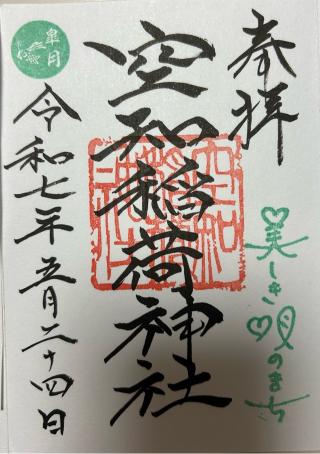 奉拝
美しき唄のまち
空知稲荷神社
皐月
令和七年五月二十四日